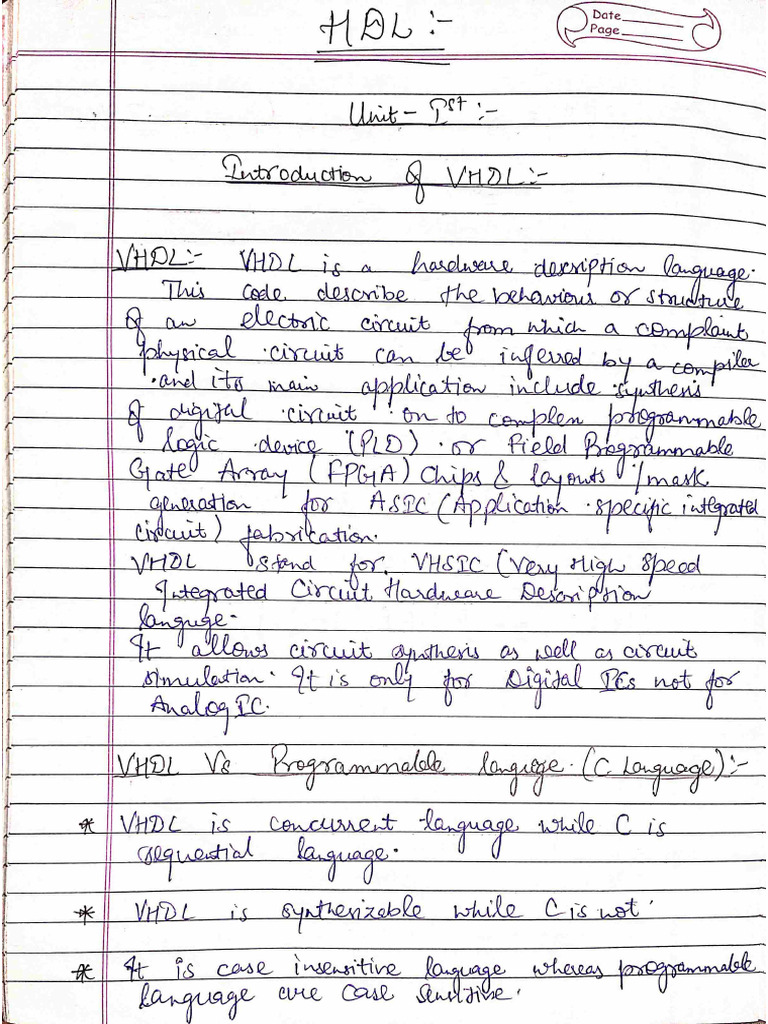 HDL :-
Date
Page
Unit - Ist :-
Introduction of VHDL :-
VHDL :- VHDL is a hardware description language.
This code describe the behaviour or structure
of an electric circuit from which a complaint
physical circuit can be inferred by a compiler
and its main application include synthesis
of digital circuit on to complen programmable
Logic device (PLD) or Field Programmable
Gate Array (FPGA) Chips & layouts / mask
generation for ASIC (Application specific integrated
circuit) fabrication.
VHDL stand for VHSIC (Very High Speed
Integrated Circuit Hardware Description
languge.
It allows circuit synthesis as well as circuit
simulation. It is only for Digital ICs not for
Analog IC.
VHDL Vs Programmable languge. (C Language) :-
* VHDL is concurrent language while C is
sequential language.
* VHDL is synthesizable while C is not.
* It is case insensitive language whereas programmable
language are case sensitive.